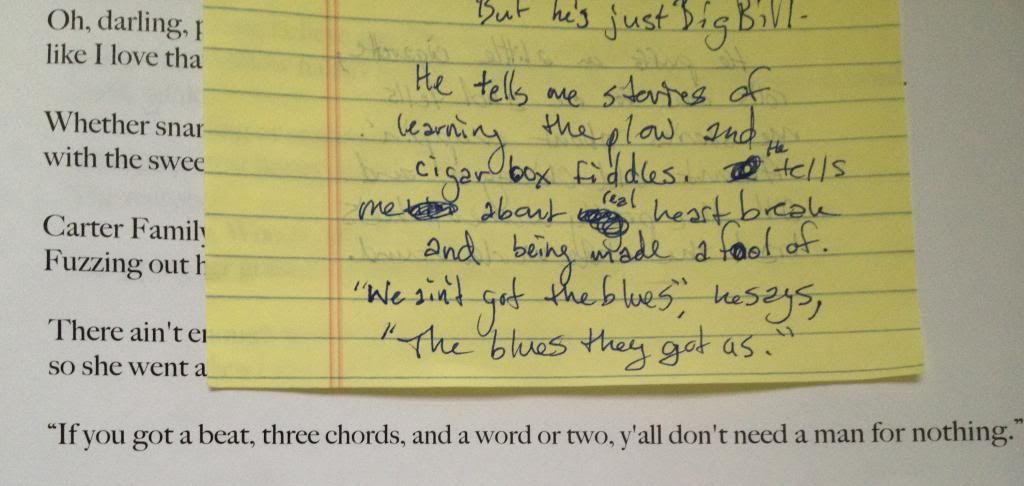 Oh, darling, p
like I love tha
Whether snar
with the swee
Carter Family
Fuzzing out h
There ain't er
so she went a
"If you got a beat, three chords, and a word or two, y'all don't need a man for nothing."
But he's just Big Bill.
He tells me stories of
learning the plow and
cigar box fiddles. He tells
me about real heart break
and being made a fool of.
"We ain't got the blues", he says,
"The blues they got us."